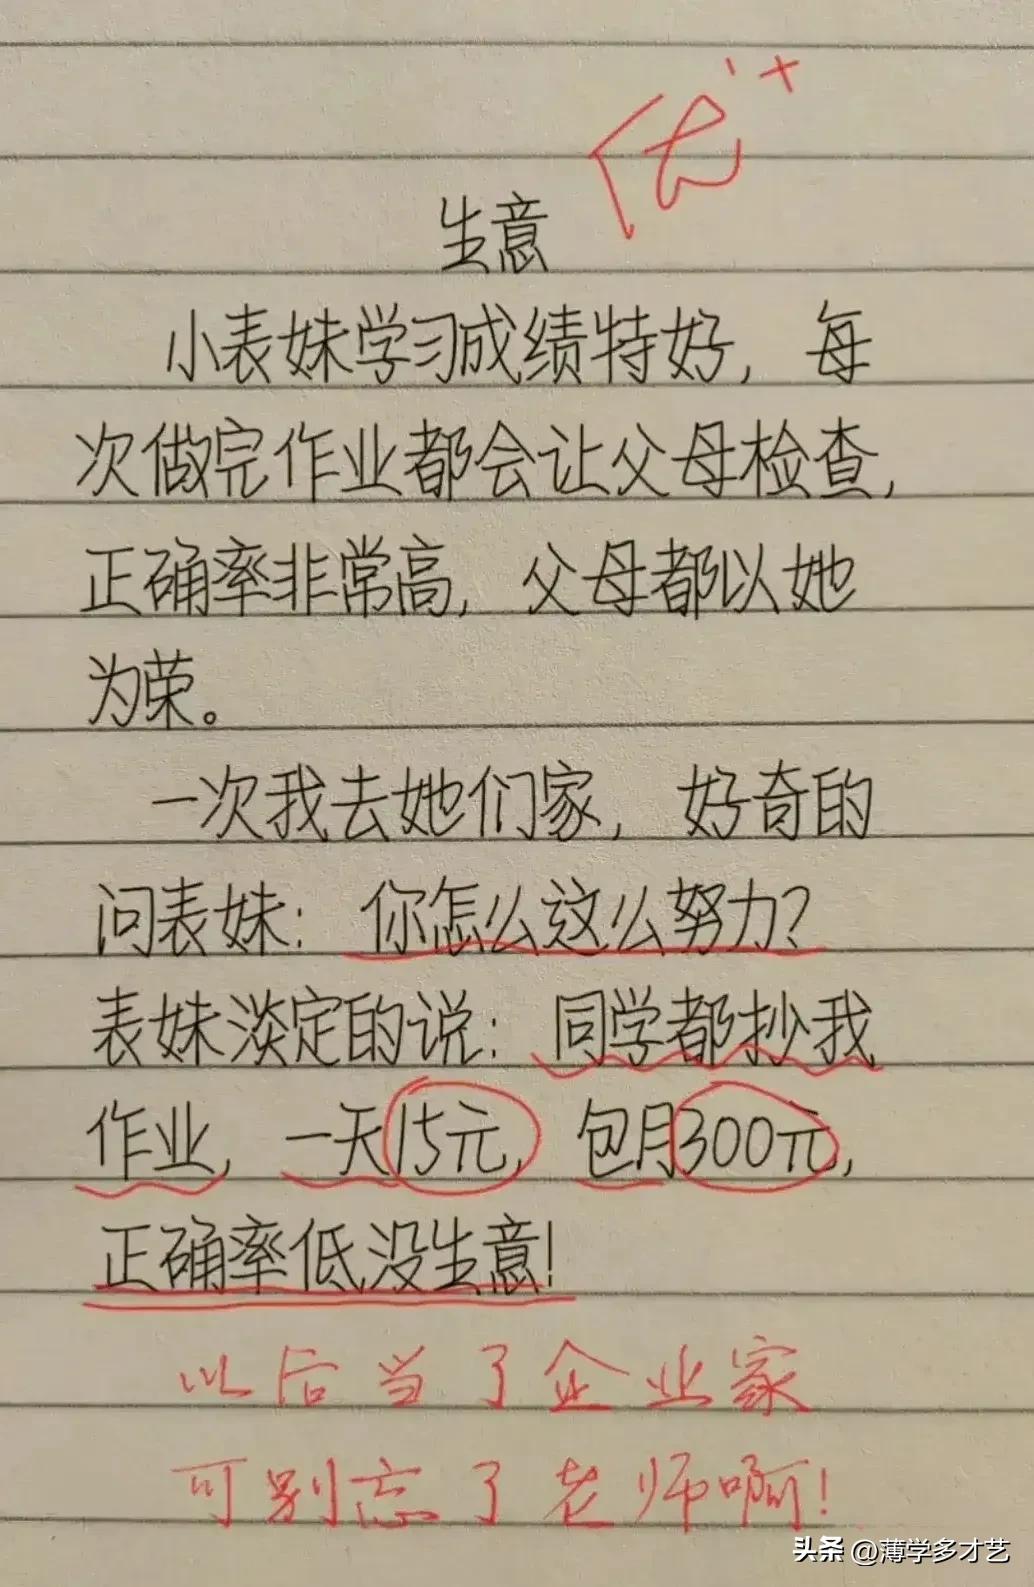 优+
生意
小表妹学习成绩特好，每
次做完作业都会让父母检查，
正确率非常高，父母都以她
为荣。
一次我去她们家，好奇的
问表妹：你怎么这么努力？
表妹淡定的说：同学都抄我
作业，一天15元，包月300元，
正确率低，没生意！
以后当了企业家
可别忘了老师啊！
头条 @薄学多才艺